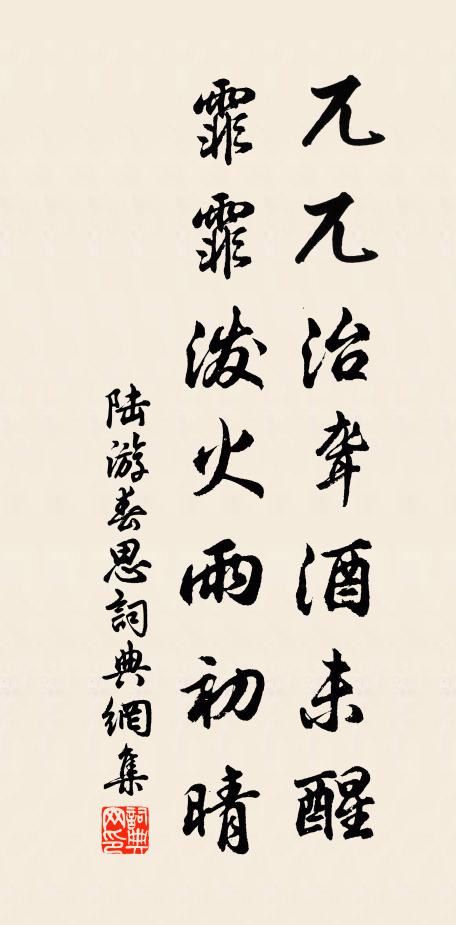 兀兀治聾酒未醒
霏霏潑火雨初晴
陆游春思詞典網集
詞典网印